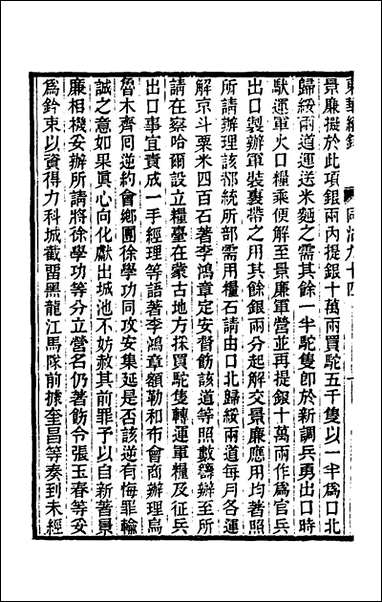 東華續錄　同治九十四
景廉擬於此項銀兩內提銀十萬兩買駝五千隻以一半爲口北
歸綏兩道運送米麵之需其餘一半駝隻卽於新調兵勇出口時
馱運軍火口糧乘便解至景廉軍營並再提銀十萬兩作爲官兵
出口製辦軍裝裹帶之用其餘銀兩分起解交景廉應用均著照
所請辦理該都統所部需用糧石請由口北歸綏兩道每月各運
解京斗粟米四百石著李鴻章定安督飭該道等照數籌辦至所
請在察哈爾設立糧臺在蒙古地方採買駝隻轉運軍糧及征兵
出口事宜責成一手經理等語著李鴻章額勒和布會商辦理烏
魯木齊囘逆約會鄉團徐學功同攻安集延是否該逆有悔罪輸
誠之意如果眞心向化獻出城池不妨赦其前罪予以自新著景
廉相機妥辦所請將徐學功等分立營名仍著飭令張玉春等妥
爲鈐束以資得力科城截留黑龍江馬隊前據奎昌等奏到未經